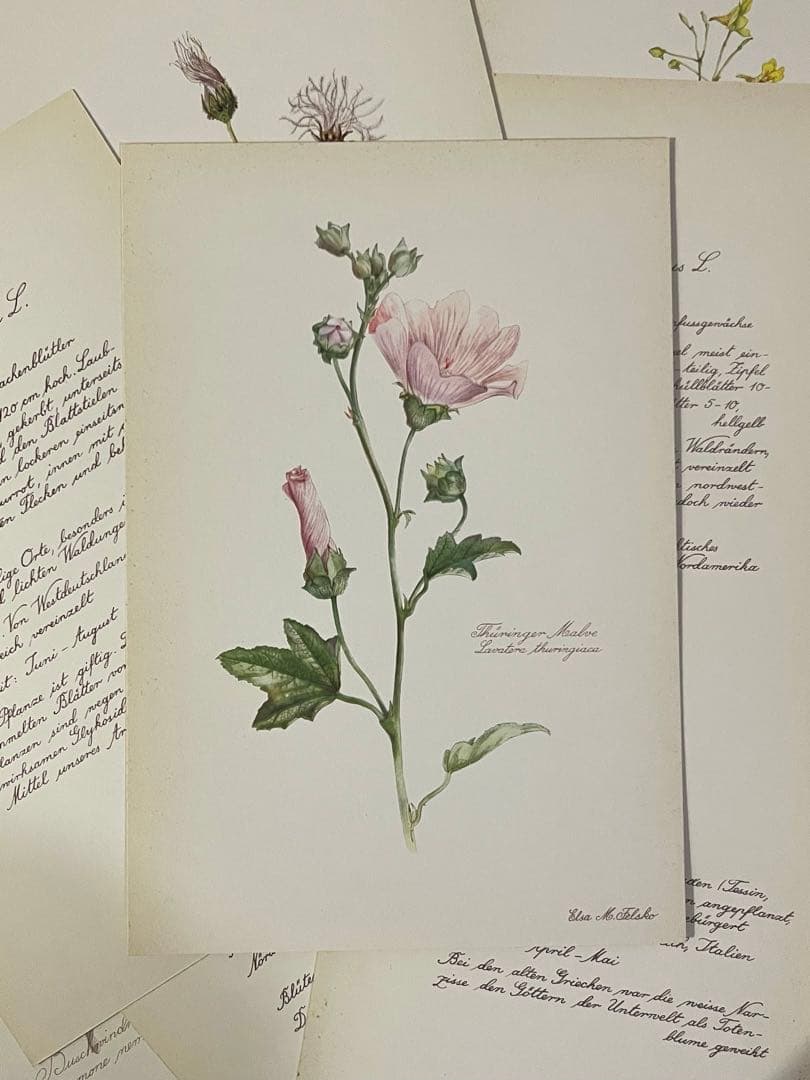 Thüringer Malve
Lavatera thuringiaca
Elsa M. Felsko
L.
achenblütler
120 cm hoch. Laub-
gekerbt, unterseits
den Blattstielen
lockeren einseiten
innen mit
Flecken und be
lige Orte, besonders i
lichten Waldunge
Von Westdeutschlan
reich vereinzelt
it: Juni – August
Pflanze ist giftig.
mmelten Blätter vor
lanzen sind wegen
wirksamen Glykosid
Mittel unseres Ar
Nor
Blüte
D
Buschwindr
mone nem
us L.
nfussgewächse
el meist ein-
-teilig, Zipfel
hüllblätter 10-
tter 5-10,
hellgelb
Waldrändern,
vereinzelt
nordwest-
doch wieder
ltisches
Nordamerika
den (Tessin,
n angepflanzt,
ebürgert
Italien
April – Mai
Bei den alten Griechen war die weisse Nar-
zisse den Göttern der Unterwelt als Toten-
blume geweiht